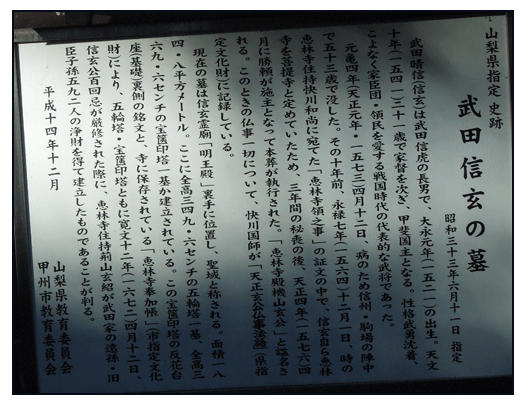 山梨県指定 史跡
武田信玄の墓
昭和三十三年六月十一日 指定
武田晴信(信玄)は武田信虎の長男で、大永元年(一五二一)の出生。天文
十年(一五四一)二十一歳で家督を次ぎ、甲斐国主となる。性格武勇沈着、
こよなく家臣団・領民を愛する戦国時代の代表的な武将であった。
元亀四年(天正元年・一五七三)四月十二日、病のため信州・駒場の陣中
で五十三歳で没した。その十年前、永禄七年(一五六四)十二月一日、時の
恵林寺住持快川和尚に宛てた「恵林寺領之事」の証文の中で、信玄自ら恵林
寺を菩提寺と定めていたため、三年間の秘喪の後、天正四年(一五七六)四
月に勝頼が施主となって本葬が執行された。「恵林寺殿機山玄公」と諡名さ
れる。このときの仏事一切について、快川国師が「天正玄公仏事法語」(県指
定文化財)に記録している。
現在の墓は信玄霊廟「明王殿」裏手に位置し、聖域と称される。面積一八
四・八平方メートル。ここに全高三四九・六センチの五輪塔一基、全高三
六九・六センチの宝篋印塔一基が建立されている。この宝篋印塔の反花台
座(基礎)裏側の銘文と、寺に保存されている「恵林寺奉加帳」(市指定文化
財)により、五輪塔・宝篋印塔ともに寛文十二年(一六七二)四月十二日、
信玄公百回忌が厳修された際に、恵林寺住持前山玄紹が武田家の遠孫・旧
臣子孫五九二人の浄財を得て建立したものであることが判る。
平成十四年十二月
山梨県教育委員会
甲州市教育委員会